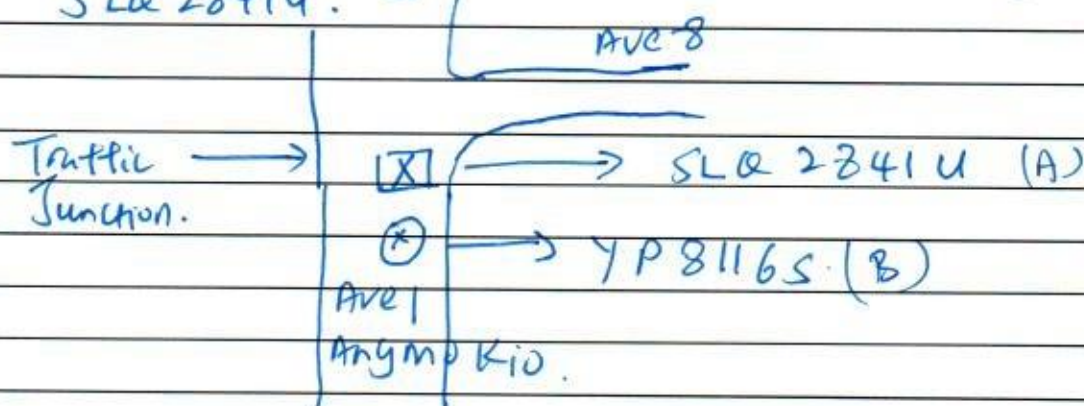 SLQ 2841U.
Ave 8
Traffic
Junction.
X
SLQ 2841U (A)
X
YP8116S. (B)
Ave 1
Angmo Kio.